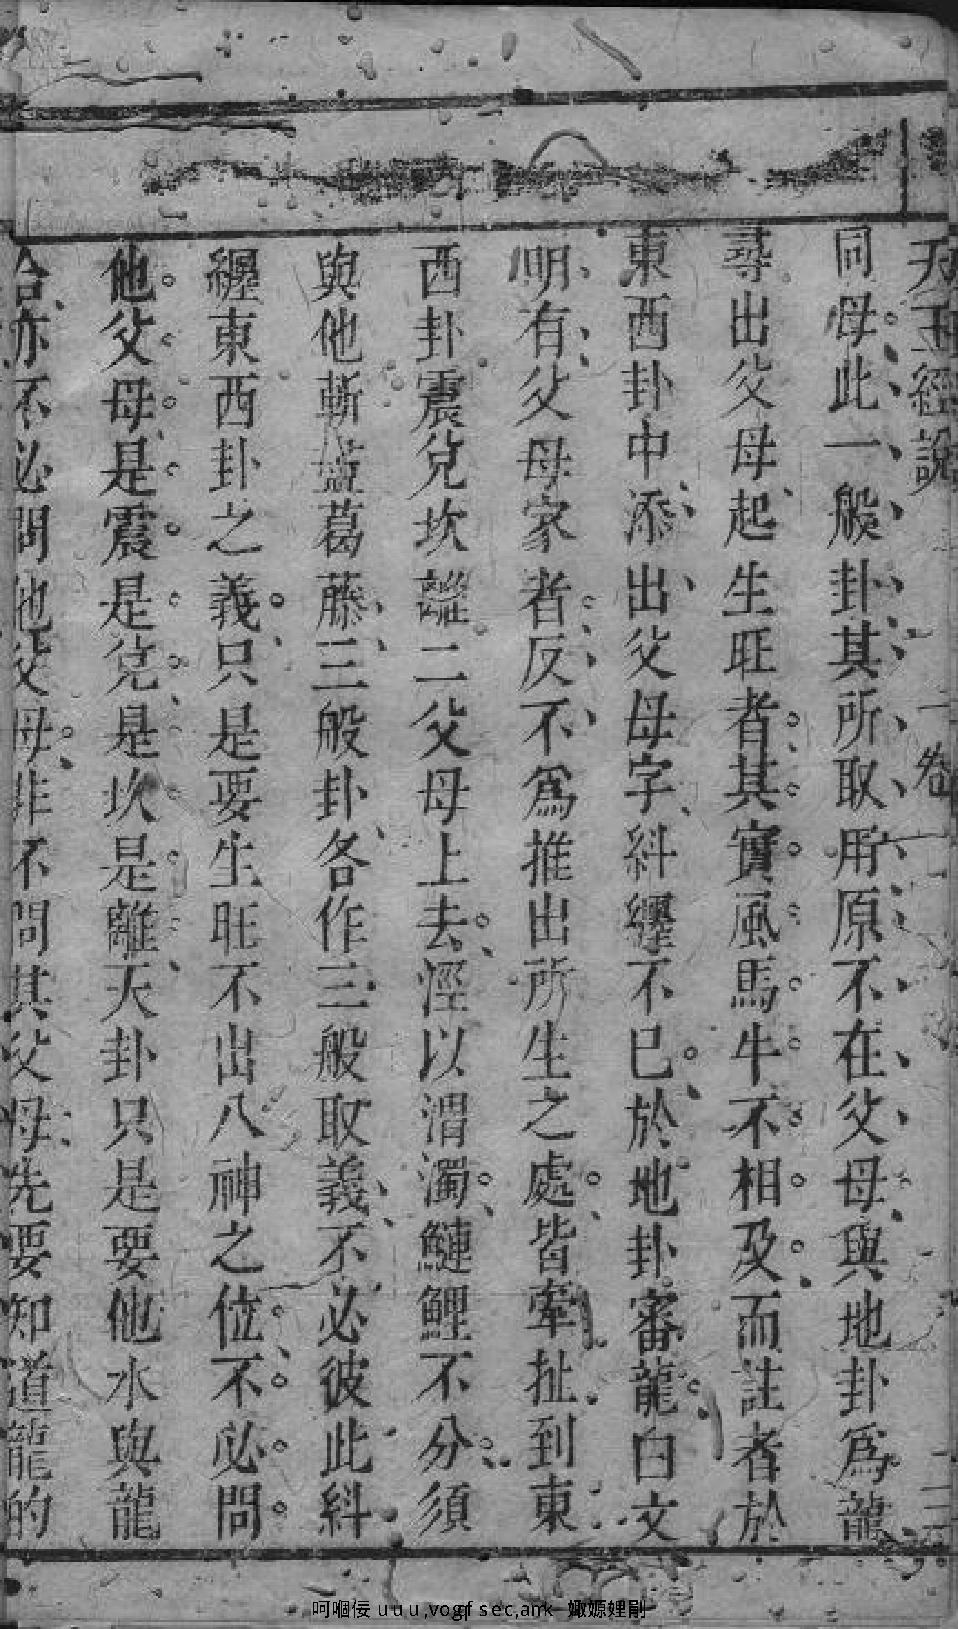 天玉經說 卷一
同母此一般卦其所取用原不在父母與地卦爲龍
尋出父母起生旺者其實風馬牛不相及而註者於
東西卦中添出父母字糾纒不已於地卦審龍白文
明有父母家者反不爲推出所生之處皆牽扯到東
西卦震兌坎離二父母上去涇以渭濁鰱鯉不分須
與他斬盡葛藤三般卦各作三般取義不必彼此糾
纒東西卦之義只是要生旺不出八神之位不必問
他父母是震是兌是坎是離天卦只是要他水與龍
合亦不必問他父母非不問其父母先要知道龍的